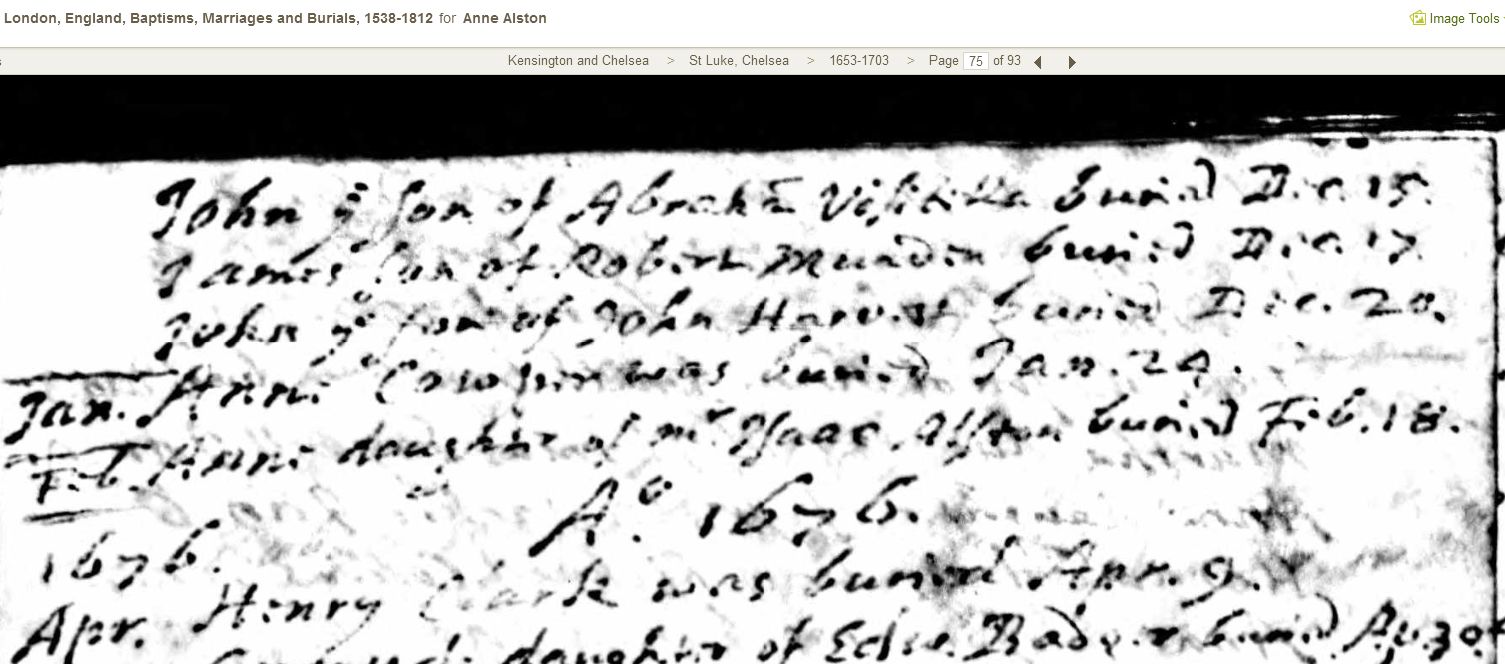 London, England, Baptisms, Marriages and Burials, 1538-1812 for Anne Alston
Image Tools
Kensington and Chelsea > St Luke, Chelsea > 1653-1703 > Page 75 of 93
John yͤ son of Abrahā buried Dec. 15.
James son of Robert Mundin buried Dec. 17.
John yͤ son of John Harvest buried Dec. 20.
Jan. Anne was buried Jan. 24.
Feb. Anne daughter of mʳ Isaac Alston buried Feb. 18.
Aº. 1676.
1676.
Apr. Henry Clark was buried Apr. 9.
daughter of buried Ap. 30